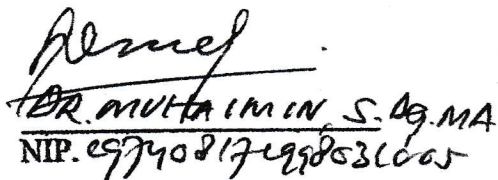 DR. MUHAIMIN, S.Ag.MA
NIP. 197408171998031005